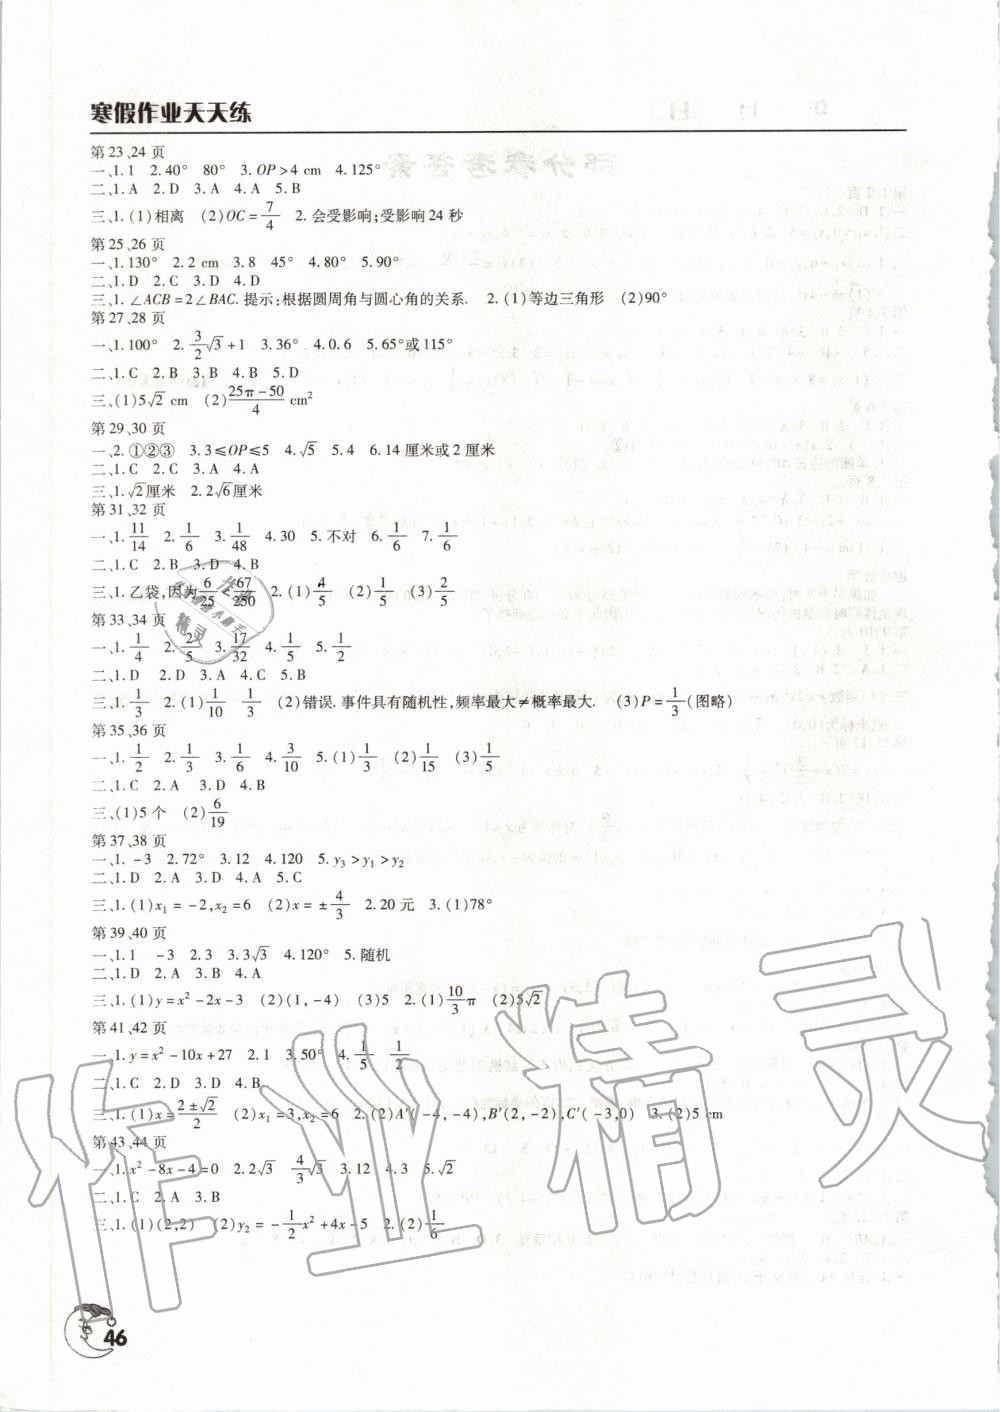 寒假作业天天练
第23、24页
一、1. 1 2. 40° 80° 3. OP>4 cm 4. 125°
二、1. A 2. D 3. A 4. A 5. B
三、1. (1)相离 (2)OC=7/4 2. 会受影响;受影响24秒
第25、26页
一、1. 130° 2. 2 cm 3. 8 45° 4. 80° 5. 90°
二、1. D 2. C 3. D 4. D
三、1. ∠ACB=2∠BAC. 提示:根据圆周角与圆心角的关系. 2. (1)等边三角形 (2)90°
第27、28页
一、1. 100° 2. 3/2√3+1 3. 36° 4. 0.6 5. 65°或115°
二、1. D 2. C 3. B 4. B 5. D
三、(1)5√2 cm (2)(25π-50)/4 cm²
第29、30页
一、2. ①②③ 3. 3≤OP≤5 4. √5 5. 4 6. 14厘米或2厘米
二、1. C 2. C 3. A 4. A
三、1. √2厘米 2. 2√6厘米
第31、32页
一、1. 11/14 2. 1/6 3. 1/48 4. 30 5. 不对 6. 1/6 7. 1/6
二、1. C 2. B 3. D 4. B
三、1. 乙袋,因为6/25<67/250 2. (1)4/5 (2)1/5 (3)2/5
第33、34页
一、1. 1/4 2. 2/5 3. 17/32 4. 1/5 5. 1/2
二、1. D 2. D 3. A 4. C 5. B
三、1. 1/3 2. (1)1/10 1/3 (2)错误. 事件具有随机性,频率最大≠概率最大. (3)P=1/3(图略)
第35、36页
一、1. 1/2 2. 1/3 3. 1/6 4. 3/10 5. (1)1/3 (2)1/15 (3)1/5
二、1. C 2. A 3. D 4. B
三、(1)5个 (2)6/19
第37、38页
一、1. -3 2. 72° 3. 12 4. 120 5. y₃>y₁>y₂
二、1. D 2. A 3. D 4. A 5. C
三、1. (1)x₁=-2,x₂=6 (2)x=±4/3 2. 20元 3. (1)78°
第39、40页
一、1. 1 -3 2. 3 3. 3√3 4. 120° 5. 随机
二、1. D 2. B 3. D 4. A
三、1. (1)y=x²-2x-3 (2)(1,-4) (3)5 2. (1)10/3π (2)5√2
第41、42页
一、1. y=x²-10x+27 2. 1 3. 50° 4. 1/5 1/2
二、1. C 2. D 3. D 4. C
三、1. (1)x=(2±√2)/2 (2)x₁=3,x₂=6 2. (2)A′(-4,-4),B′(2,-2),C′(-3,0) 3. (2)5 cm
第43、44页
一、1. x²-8x-4=0 2. 2√3 4/3√3 3. 12 4. 3 5. √2
二、1. C 2. A 3. B
三、1. (1)(2,2) (2)y₂=-1/2x²+4x-5 2. (2)1/6
46
作业精灵